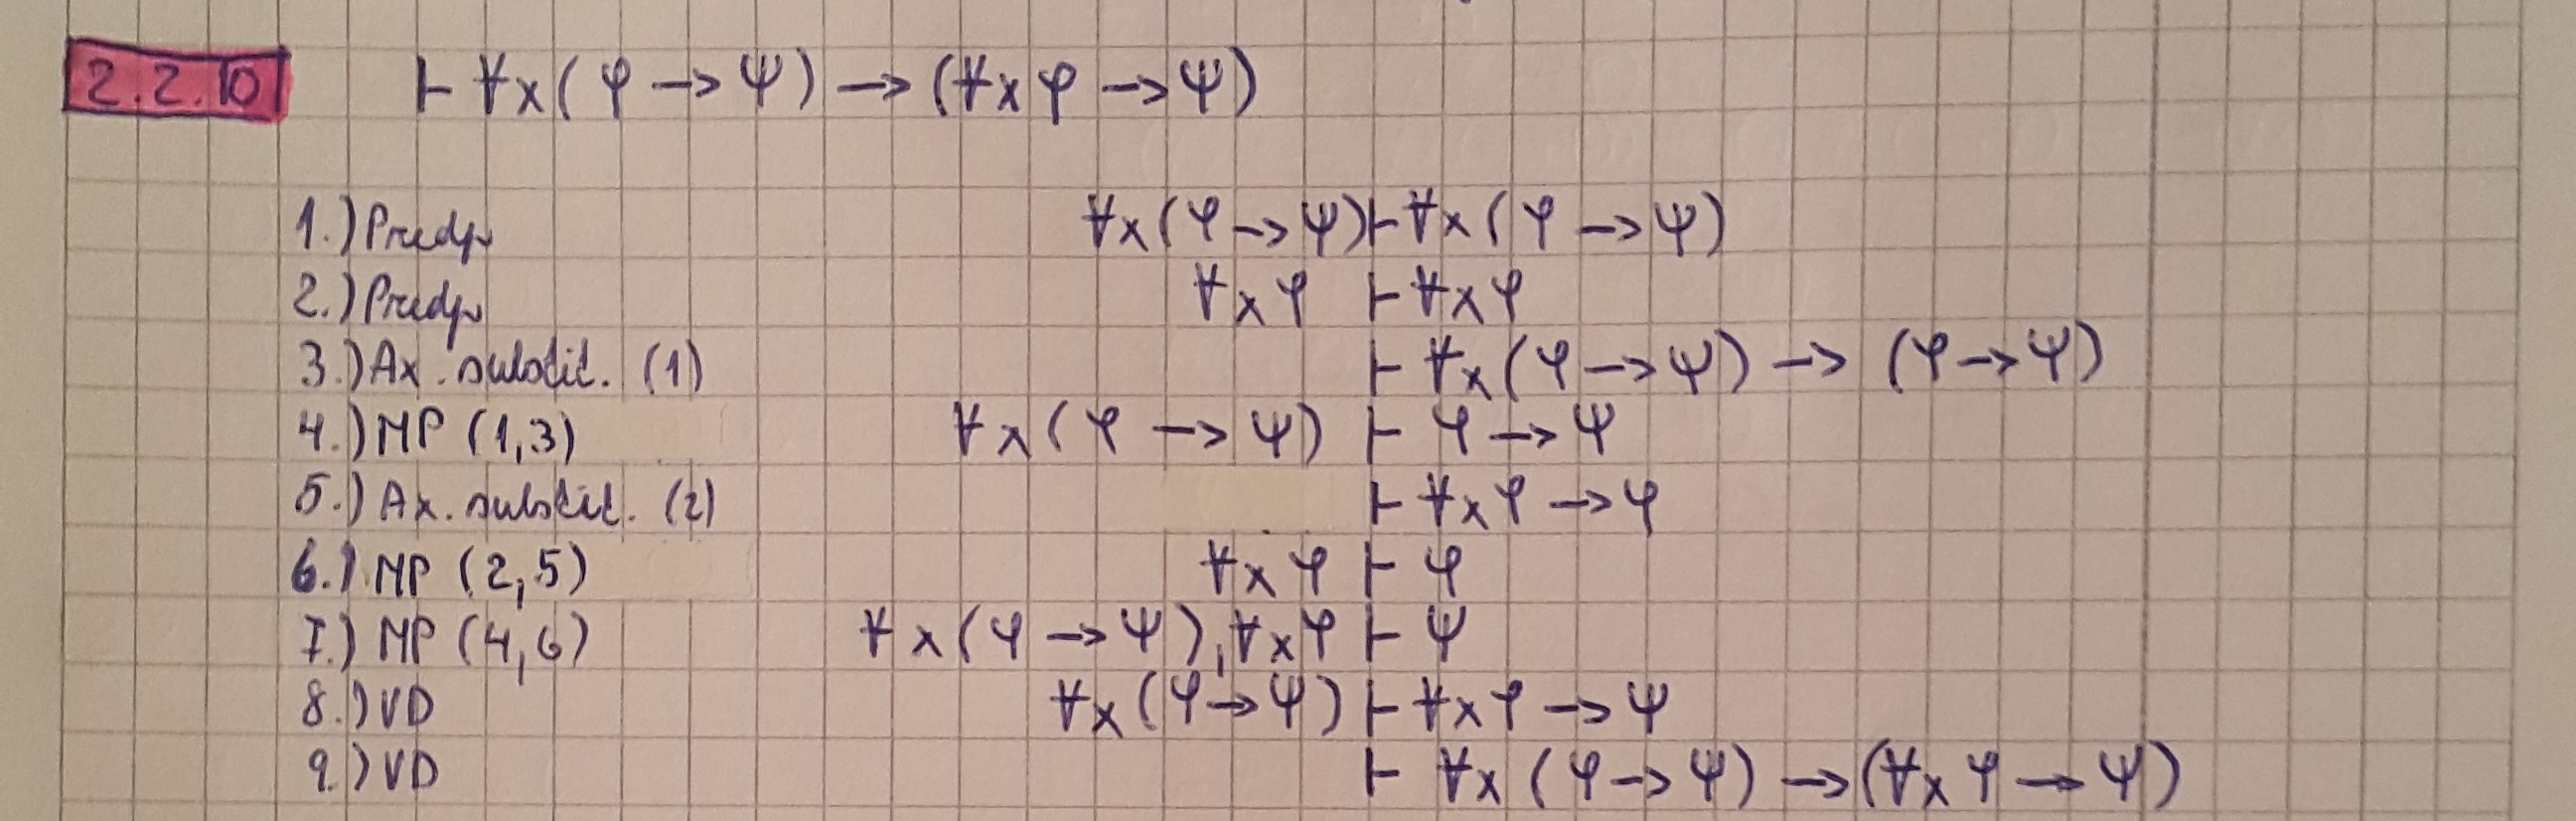 2.2.10 ⊢ ∀x(φ → ψ) → (∀xφ → ψ)
1.) Predp ∀x(φ → ψ) ⊢ ∀x(φ → ψ)
2.) Predp ∀xφ ⊢ ∀xφ
3.) Ax. substit. (1) ⊢ ∀x(φ → ψ) → (φ → ψ)
4.) MP (1,3) ∀x(φ → ψ) ⊢ φ → ψ
5.) Ax. substit. (2) ⊢ ∀xφ → φ
6.) MP (2,5) ∀xφ ⊢ φ
7.) MP (4,6) ∀x(φ → ψ), ∀xφ ⊢ ψ
8.) VD ∀x(φ → ψ) ⊢ ∀xφ → ψ
9.) VD ⊢ ∀x(φ → ψ) → (∀xφ → ψ)